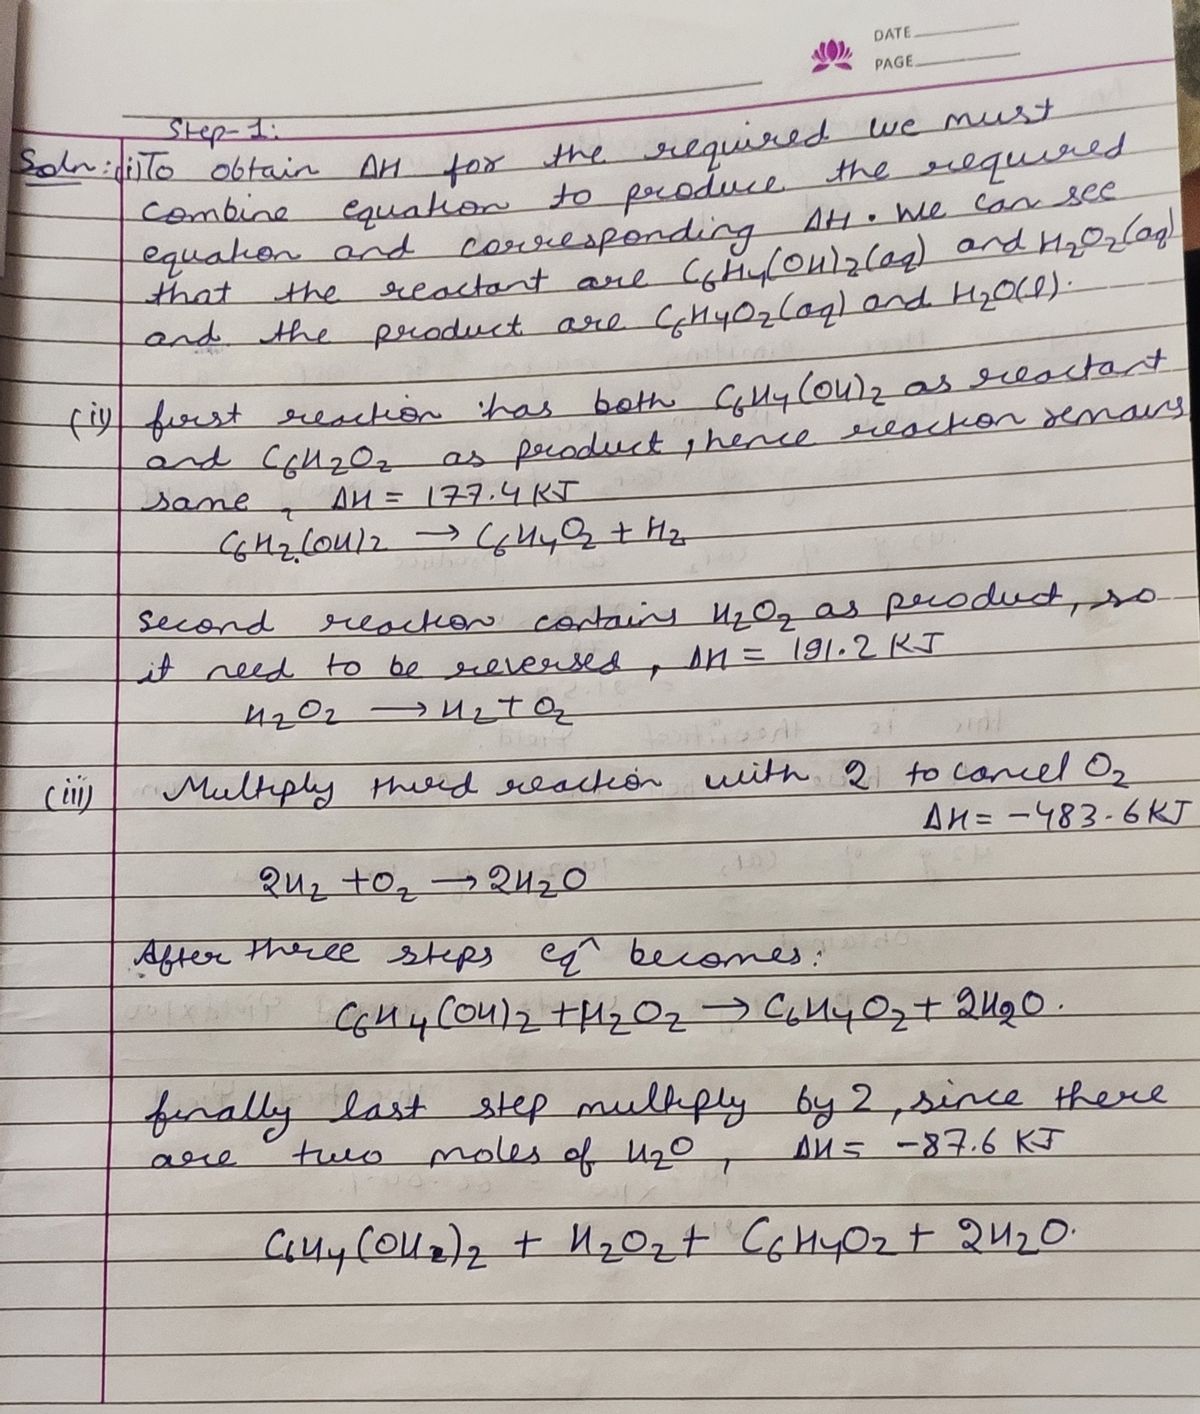 DATE
PAGE
Step-1:
Soln: (i) To obtain ΔH for the required we must
combine equation to produce the required
equation and corresponding ΔH. We can see
that the reactant are C6H4(OH)2(aq) and H2O2(aq)
and the product are C6H4O2(aq) and H2O(l).
(ii) first reaction has both C6H4(OH)2 as reactant
and C6H2O2 as product, hence reaction remains
same, ΔH = 177.4 KJ
C6H2(OH)2 → C6H4O2 + H2
Second reaction contains H2O2 as product, so
it need to be reversed, ΔH = 191.2 KJ
H2O2 → H2 + O2
(iii) Multiply third reaction with 2 to cancel O2
ΔH = -483.6 KJ
2H2 + O2 → 2H2O
After three steps eqn becomes:
C6H4(OH)2 + H2O2 → C6H4O2 + 2H2O.
finally last step multiply by 2, since there
are two moles of H2O, ΔH = -87.6 KJ
C6H4(OH2)2 + H2O2 + C6H4O2 + 2H2O.